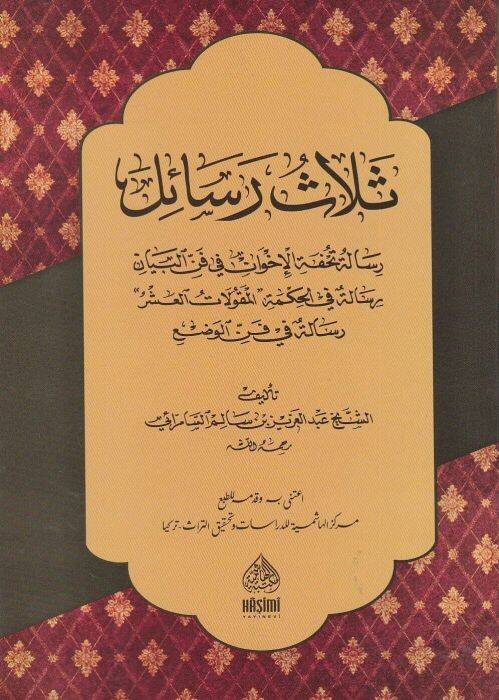 ثلاث رسائل
رسالة تحفة الإخوان في فن البيان
رسالة في الحكمة "المقولات العشر"
رسالة في فن الوضع
تأليف
الشيخ عبد العزيز بن سالم السامرائي
رحمه الله
اعتنى به وقدمه للطبع
مركز الهاشمية للدراسات وتحقيق التراث - تركيا
HÂŞİMİ
YAYINEVİ